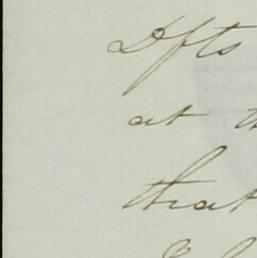 Dfts
at
that